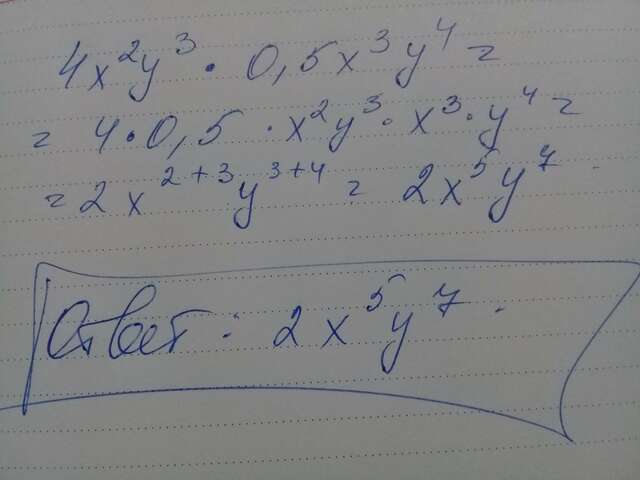 4x²y³ · 0,5x³y⁴ =
= 4 · 0,5 · x²y³ · x³ · y⁴ =
= 2x²⁺³y³⁺⁴ = 2x⁵y⁷.
Ответ: 2x⁵y⁷.